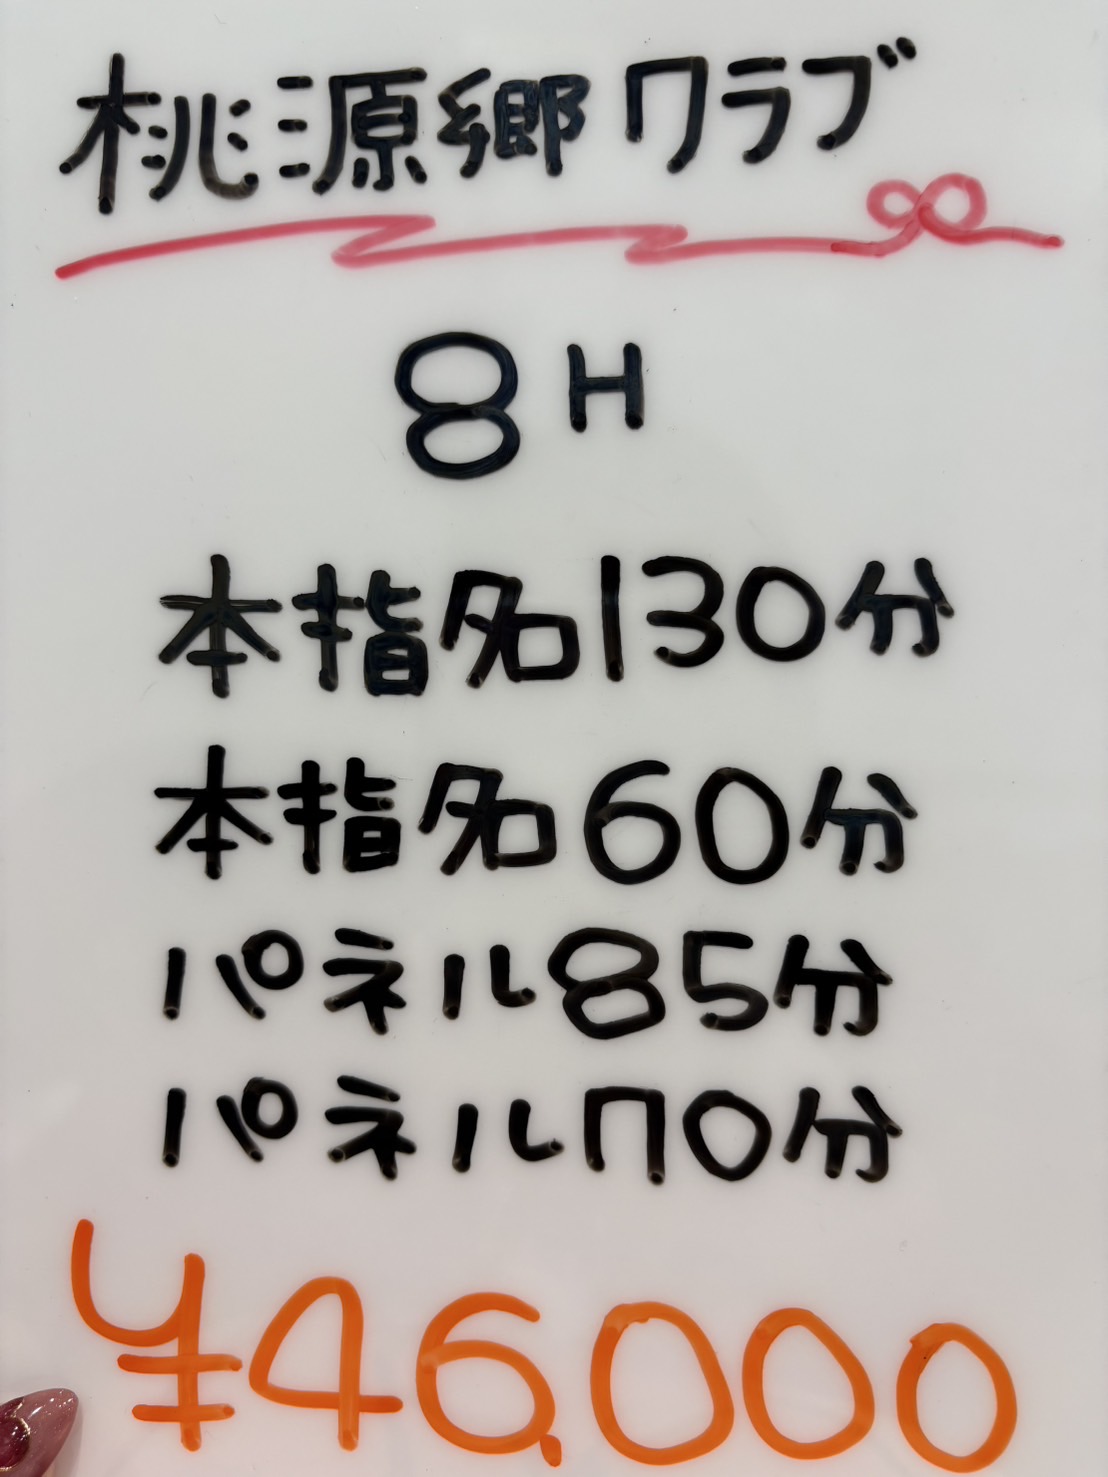 桃源郷クラブ
8H
本指名130分
本指名60分
パネル85分
パネル70分
¥46,000